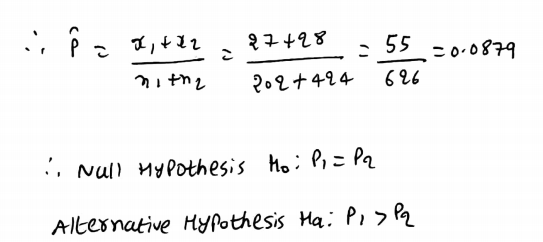 ∴ p̂ = (x₁+x₂)/(n₁+n₂) = (27+28)/(202+424) = 55/626 = 0.0879
∴ Null Hypothesis H₀: P₁ = P₂
Alternative Hypothesis Ha: P₁ > P₂